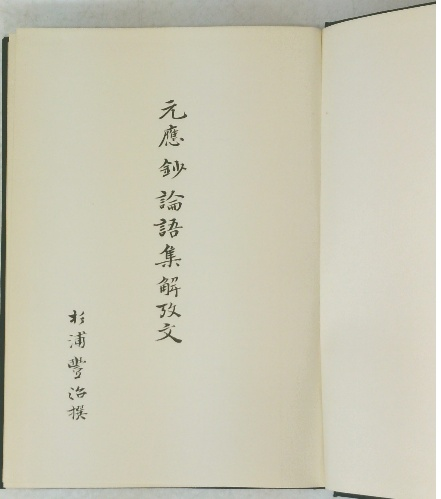 元應鈔論語集解攷文
杉浦豐治撰